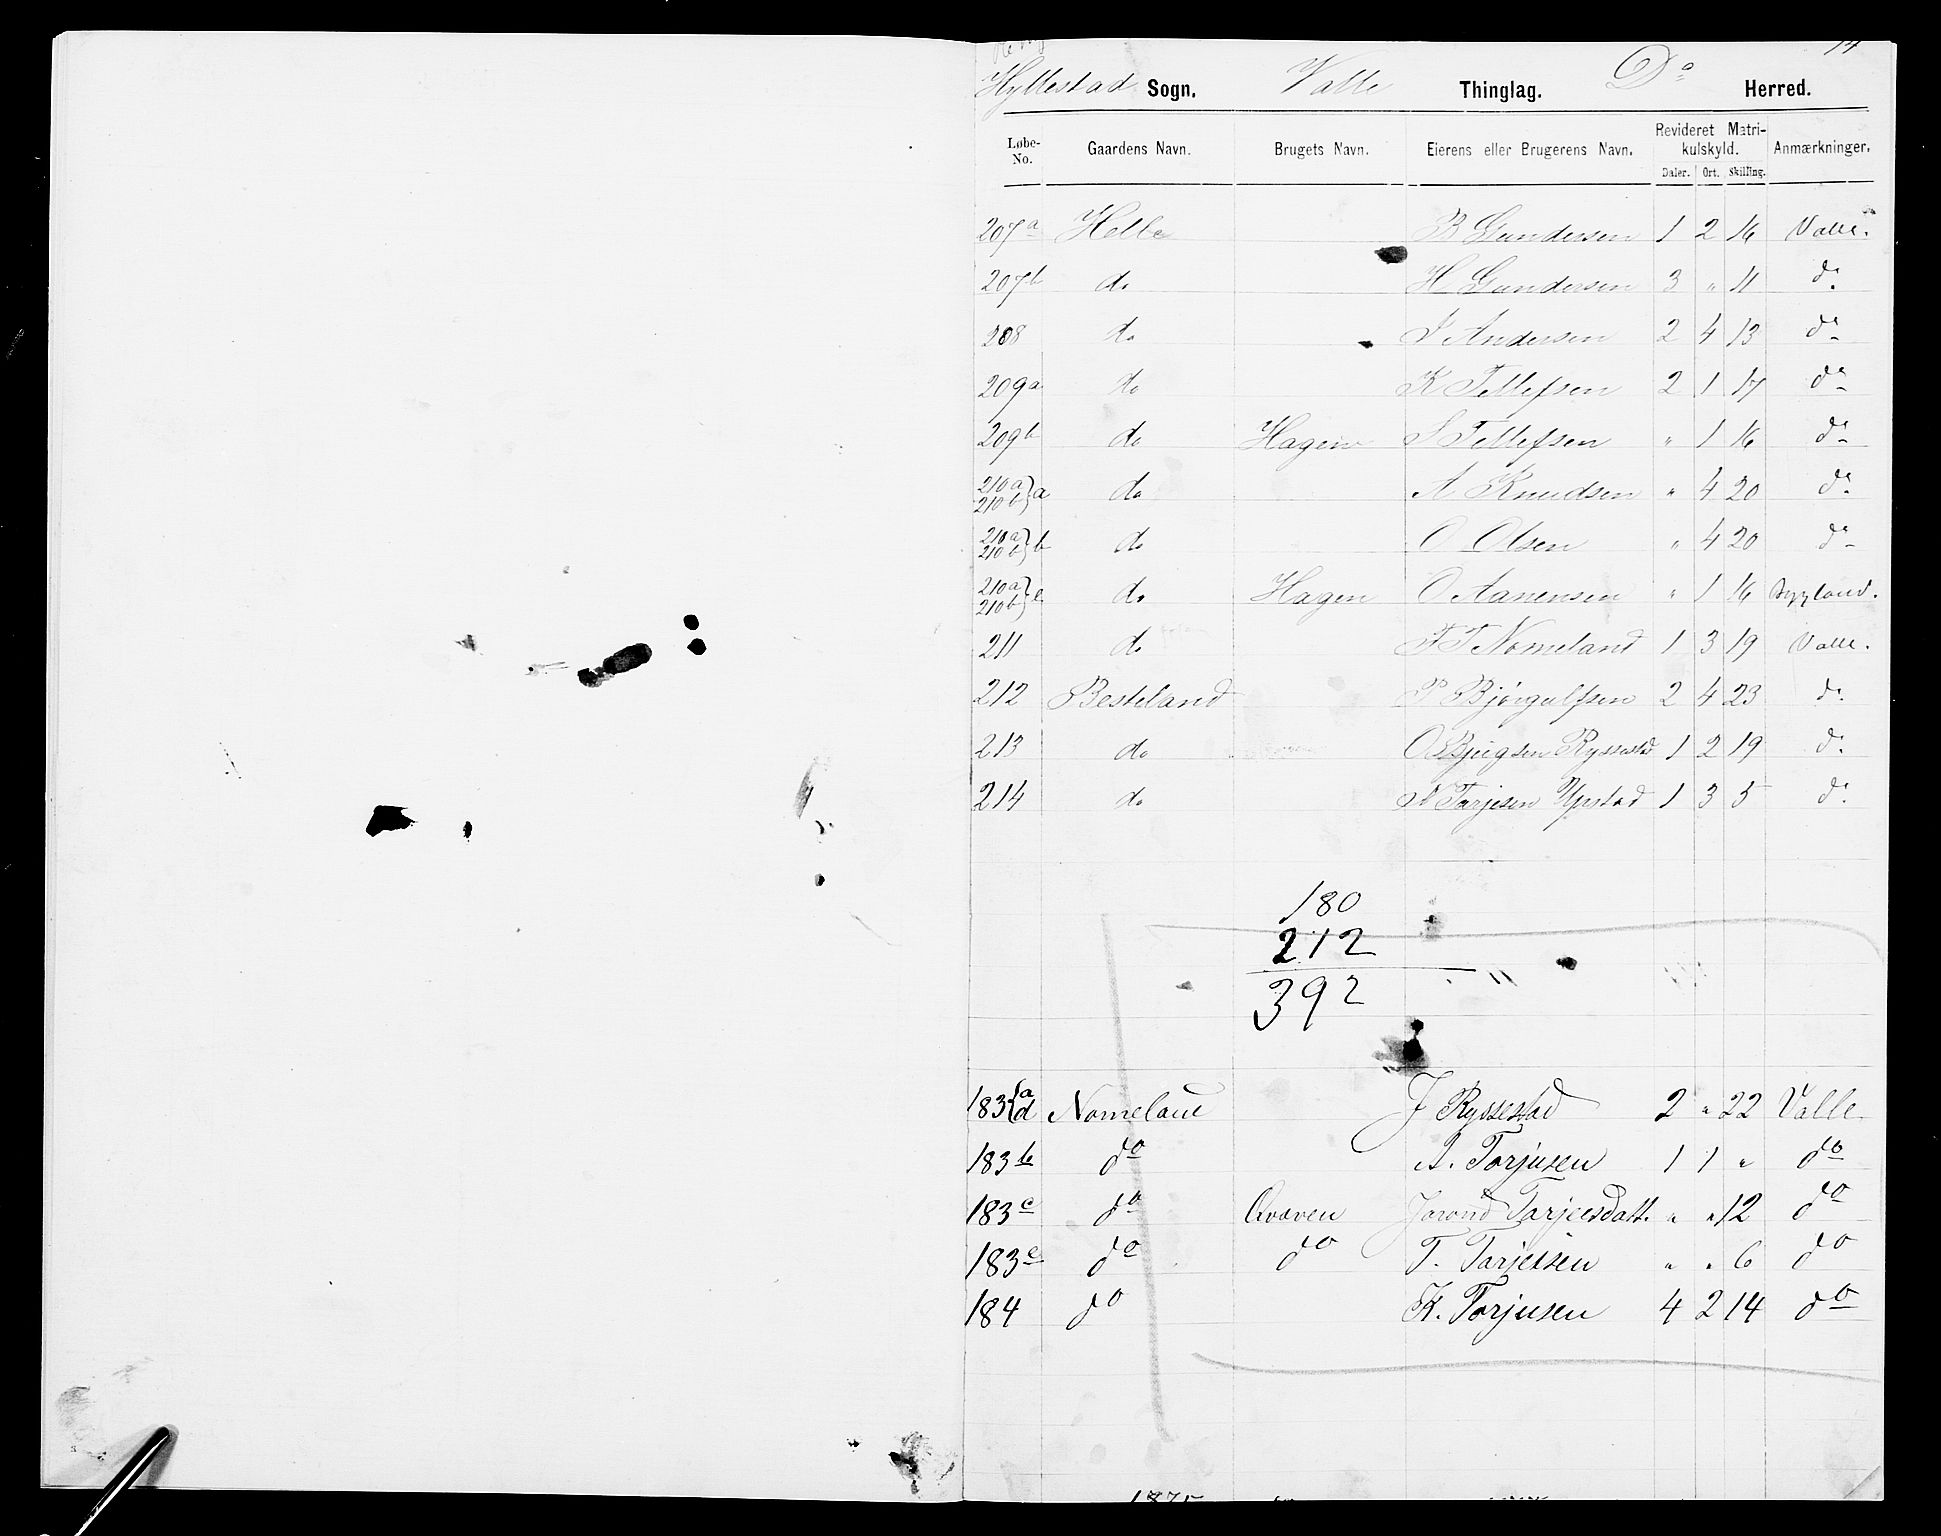 Hyllestad Sogn. Valle Thinglag. Do Herred.
Løbe-No. Gaardens Navn. Brugets Navn. Eierens eller Brugerens Navn. Revideret Matrikulskyld. Anmærkninger.
Daler. Ort. Skilling.
207a Helle B Gundersen 1 2 16 Valle.
207b do H Gundersen 3 " 11 do
208 do Andersen 2 4 13 do
209a do K Tellefsen 2 1 17 do
209b do Hagen S Tellefsen " 1 16 do
210a 210b } a do A Knudsen " 4 20 do
210a 210b } b do O Olsen " 4 20 do
210a 210b } c do Hagen O Aanensen " 1 16 Bygland.
211 do T T Nomeland 1 3 19 Valle.
212 Besteland P Bjørgulfsen 2 4 23 do
213 do O Bjørgsen Ryssestad 1 2 19 do
214 do Tarjesen Upstad 1 3 5 do
180
212
392
183 { a d Nomeland J Ryssestad 2 " 22 Valle
183b do A. Torjusen 1 1 " do
183c do Qvaven Jorond Tarjeisdatt. " " 12 do
183e do do T. Tarjeisen " " 6 do
184 do K. Torjusen 4 2 14 do